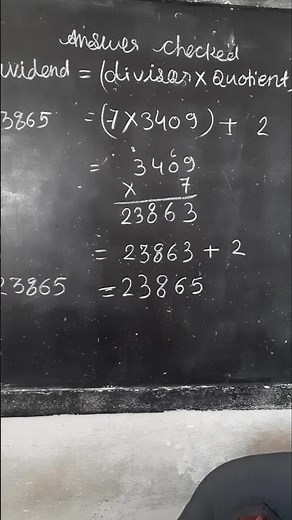 Answer checked
vidend = (divisor × Quotient
3865 = (7 × 3409) + 2
2 6
= 3409
× 7
23863
= 23863 + 2
23865 = 23865